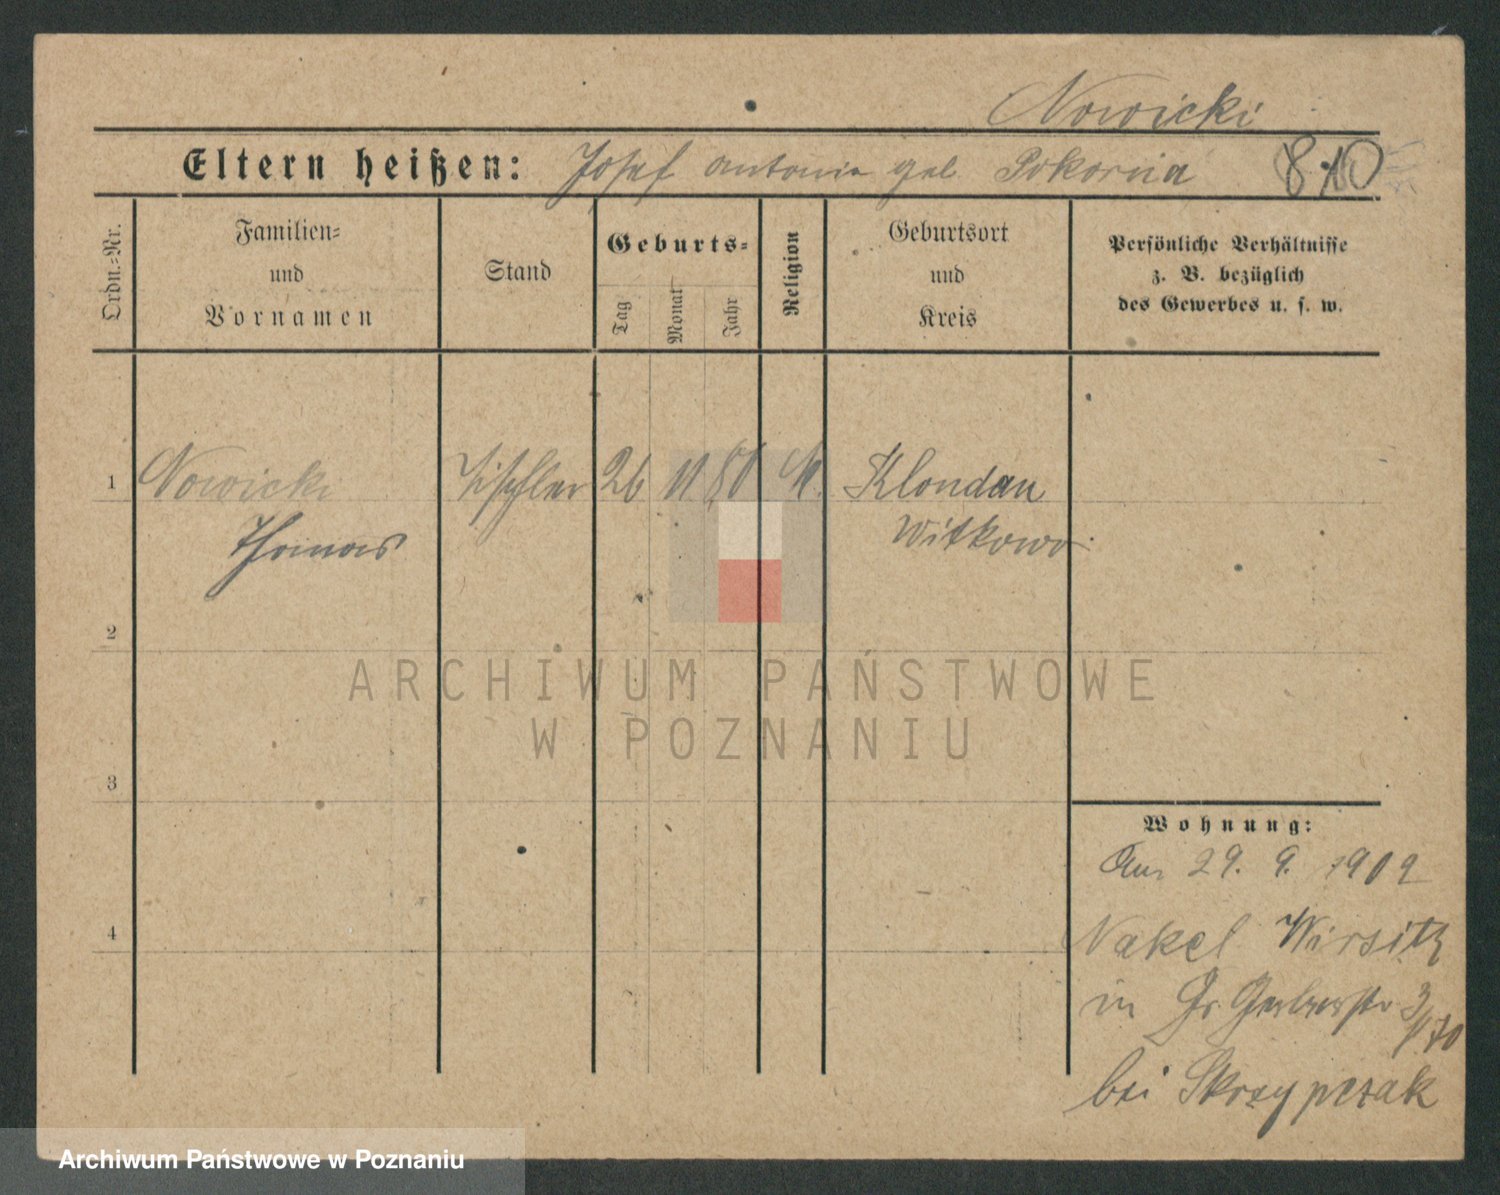 Nowicki
Eltern heißen: Josef Antonie geb. Pokorna 810
Ordn.-Nr.
Familien-
und
Vornamen
Stand
Geburts-
Tag
Monat
Jahr
Religion
Geburtsort
und
Kreis
Persönliche Verhältnisse
z. B. bezüglich
des Gewerbes u. s. w.
1 Nowicki Tischler 26 11 80 Klondau
Thomas Witkowo
2
ARCHIWUM PAŃSTWOWE
W POZNANIU
3
Wohnung:
Am 29. 9. 1902
4 Nakel Wirsitz
in Gr. Gerberstr
bei Skrzypczak
Archiwum Państwowe w Poznaniu